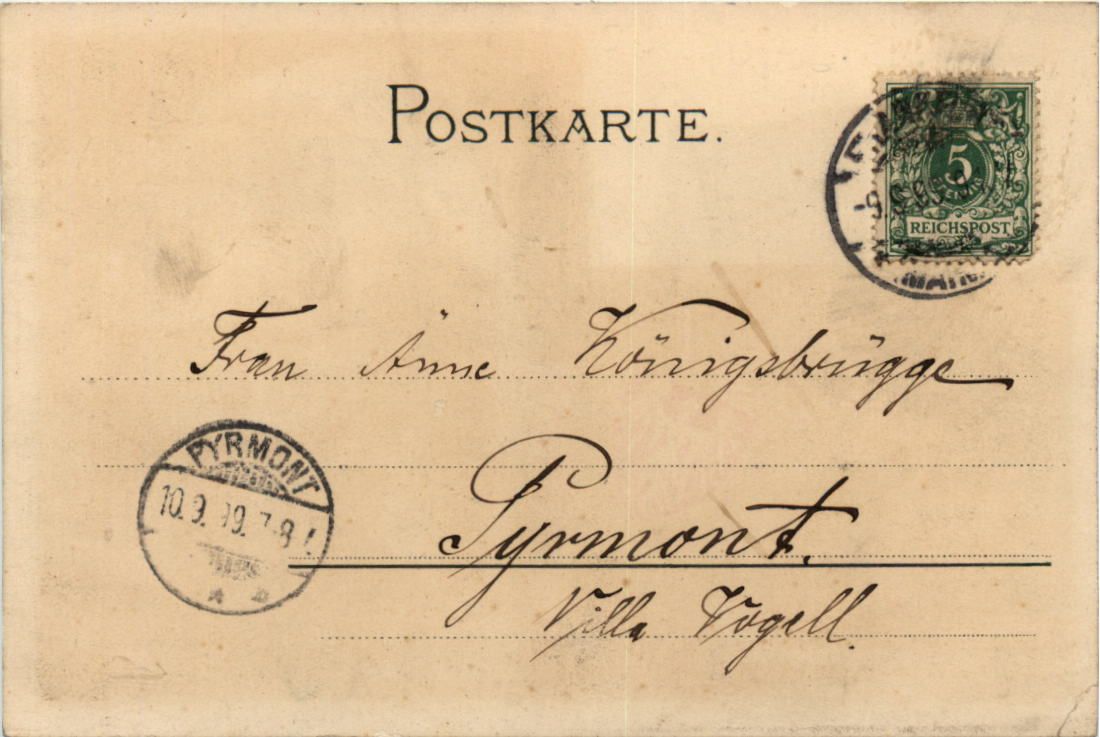 POSTKARTE.
5
PFENNIG
REICHSPOST
Frau Änne Königsbrügge
PYRMONT
10.9.99. 7-8
Pyrmont.
Villa Vogell.